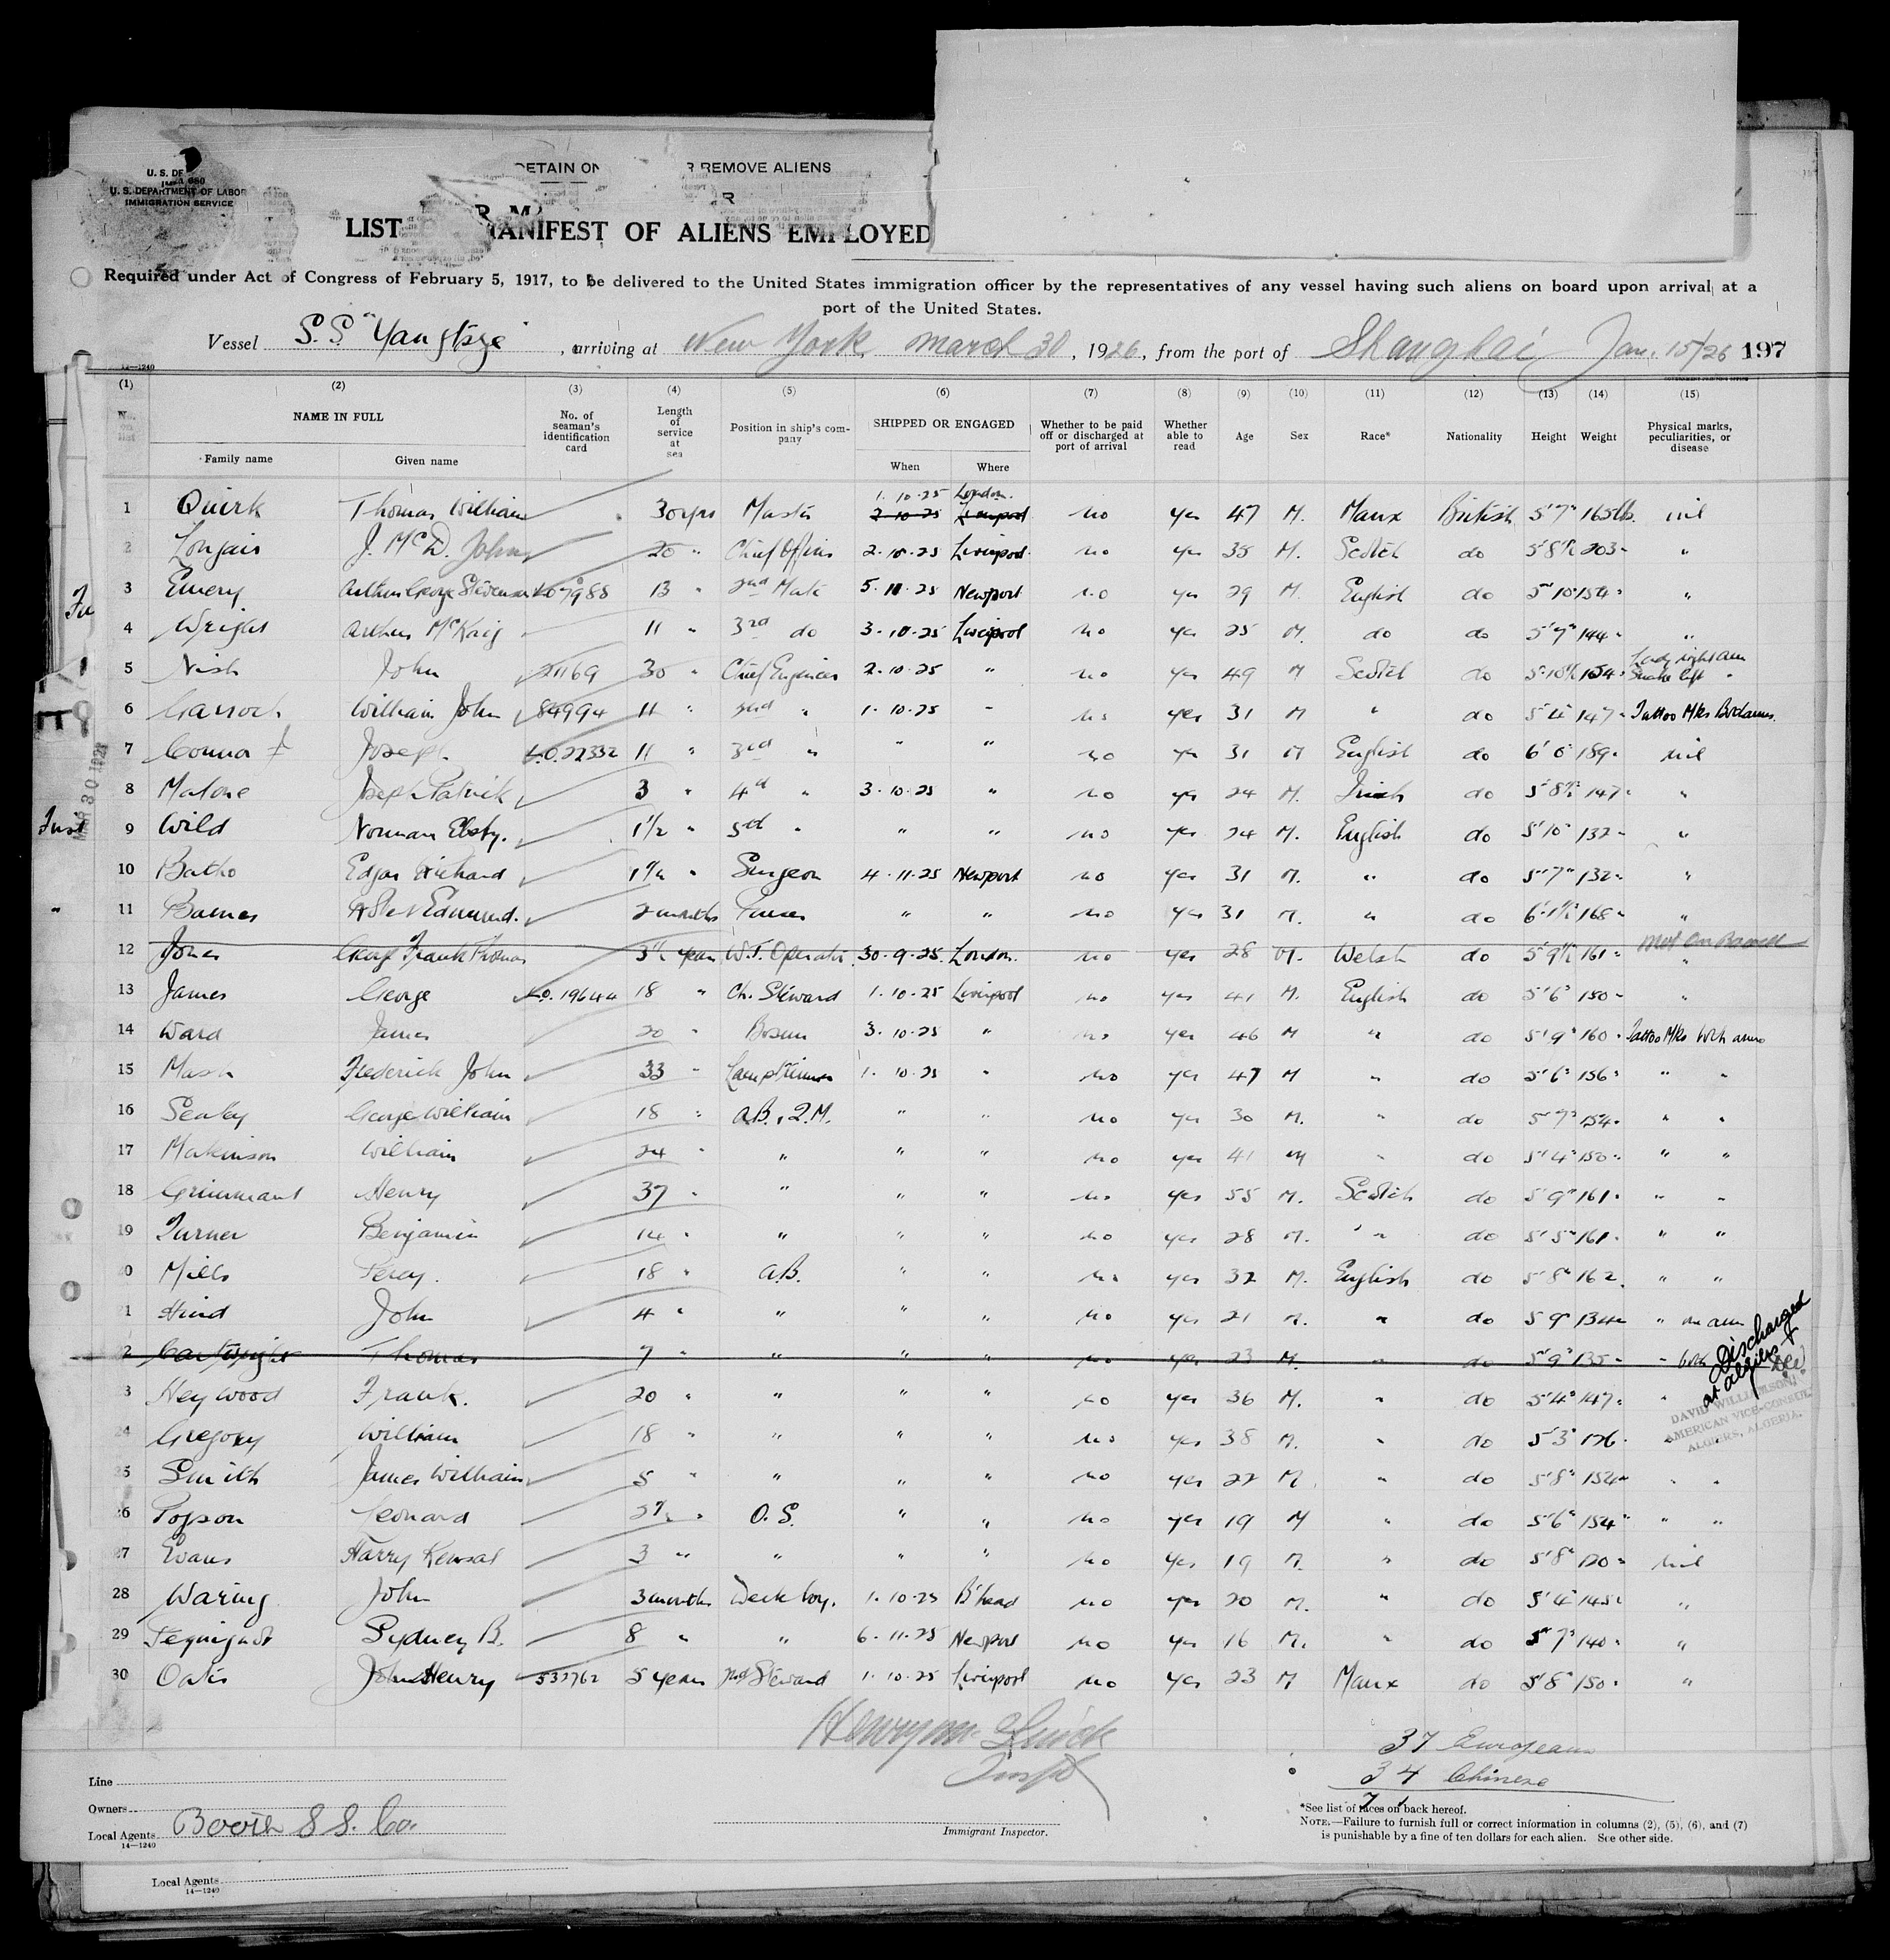 U. S. DEPARTMENT OF LABOR
IMMIGRATION SERVICE
DETAIN ON R REMOVE ALIENS
LIST MANIFEST OF ALIENS EMPLOYED
Required under Act of Congress of February 5, 1917, to be delivered to the United States immigration officer by the representatives of any vessel having such aliens on board upon arrival at a
port of the United States.
Vessel S.S. "Yangtsze" , arriving at New York March 30, 1926, from the port of Shanghai Jan. 15/26 197
14—1240
(1) (2) (3) (4) (5) (6) (7) (8) (9) (10) (11) (12) (13) (14) (15)
No. on list NAME IN FULL No. of seaman's identification card Length of service at sea Position in ship's company SHIPPED OR ENGAGED Whether to be paid off or discharged at port of arrival Whether able to read Age Sex Race* Nationality Height Weight Physical marks, peculiarities, or disease
Family name Given name When Where
1. 10. 25 London
1 Quirk Thomas William 30 yrs Master 2 10 25 Liverpool no yes 47 M. Manx British 5'7" 165 lb. nil
2 Longair J. McD. John 20 " Chief Officer 2. 10. 25 Liverpool no yes 35 M. Scotch do 5'8½ 203 "
3 Emery Arthur George Stevenson 13 " 2nd Mate 5. 11. 25 Newport no yes 29 M. English do 5'10" 154 "
4 Wright Arthur McKaig 11 " 3rd do 3. 10. 25 Liverpool no yes 25 M. do do 5'7" 144 "
5 Nish John 21169 30 " Chief Engineer 2. 10. 25 " no yes 49 M Scotch do 5'10½ 154 Lady right arm Snake left "
6 Garroch William John 84994 11 " 2nd " 1. 10. 25 " no yes 31 M " do 5'4" 147 Tattoo Mks Both arms.
7 Joseph 22332 11 " 3rd " " " no yes 31 M English do 6'0" 189 nil
8 Malone Joseph Patrick 3 " 4th " 3. 10. 25 " no yes 24 M. Irish do 5'8½ 147 "
9 Wild Norman Elsby. 1½ " 5th " " " no yes 24 M. English do 5'10" 132 "
10 Batho Edgar Richard 1½ " Surgeon 4. 11. 25 Newport no yes 31 M. " do 5'7" 132 "
11 Barnes Edmund. 2 months Purser " " no yes 31 M. " do 6'1½ 168 "
12 Jones George Frank Thomas 3½ years W.T. Operator 30. 9. 25. London. no yes 28 M. Welsh do 5'9½ 161 " Not on Board
13 James George 19644 18 " Ch. Steward 1. 10. 25 Liverpool no yes 41 M. English do 5'6" 150 "
14 Ward James 20 " Bosun 3. 10. 25 " no yes 46 M " do 5'9" 160 Tattoo Mks both arms
15 Mason Frederick John 33 " Lamptrimmer 1. 10. 25 " no yes 47 M " do 5'6" 156 " "
16 Sealey George William 18 " A.B., Q.M. " " no yes 30 M. " do 5'7" 154 " "
17 Makinson William 24 " " " " no yes 41 M " do 5'4" 150 " "
18 Henry 37 " " " " no yes 55 M. Scotch do 5'9" 161 " "
19 Turner Benjamin 14 " " " " no yes 28 M. " do 5'5" 161 " "
20 Mills Percy. 18 " A.B. " " no yes 32 M. English do 5'8" 162 " "
21 Hind John 4 " " " " no yes 21 M. " do 5 9" 134 " on arm
22 Cartwright Thomas 7 " " " " no yes 23 M. " do 5'9" 135 " both
Discharged at Algiers
DAVID WILLIAMSON
AMERICAN VICE-CONSUL
ALGIERS, ALGERIA.
23 Heywood Frank. 20 " " " " no yes 36 M. " do 5'4" 147 "
24 Gregory William 18 " " " " no yes 38 M. " do 5'3" 126 "
25 Smith James William 5 " " " " no yes 22 M. " do 5'8" 154 " "
26 Popson Leonard 2½ " O.S. " " no yes 19 M " do 5'6" 154 " "
27 Evans Harry Kensal 3 " " " " no yes 19 M. " do 5'8" 120 nil
28 Waring John 3 months Deck boy. 1. 10. 25 B'head no yes 20 M. " do 5'4" 145 "
29 Pequignot Sydney B. 8 " " 6. 11. 25 Newport no yes 16 M. " do 5'7" 140 "
30 Oates John Henry 532762 5 years 2nd Steward 1. 10. 25 Liverpool no yes 23 M Manx do 5'8" 150 "
MAR 30 1926
37 Europeans
34 Chinese
71
Line
Owners
Local Agents Booth S S. Co.
14—1240
Immigrant Inspector.
*See list of races on back hereof.
NOTE.—Failure to furnish full or correct information in columns (2), (5), (6), and (7)
is punishable by a fine of ten dollars for each alien. See other side.
Local Agents
14—1240